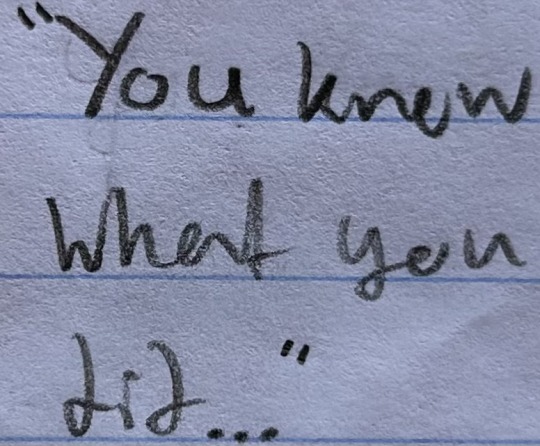 "You know
what you
did..."